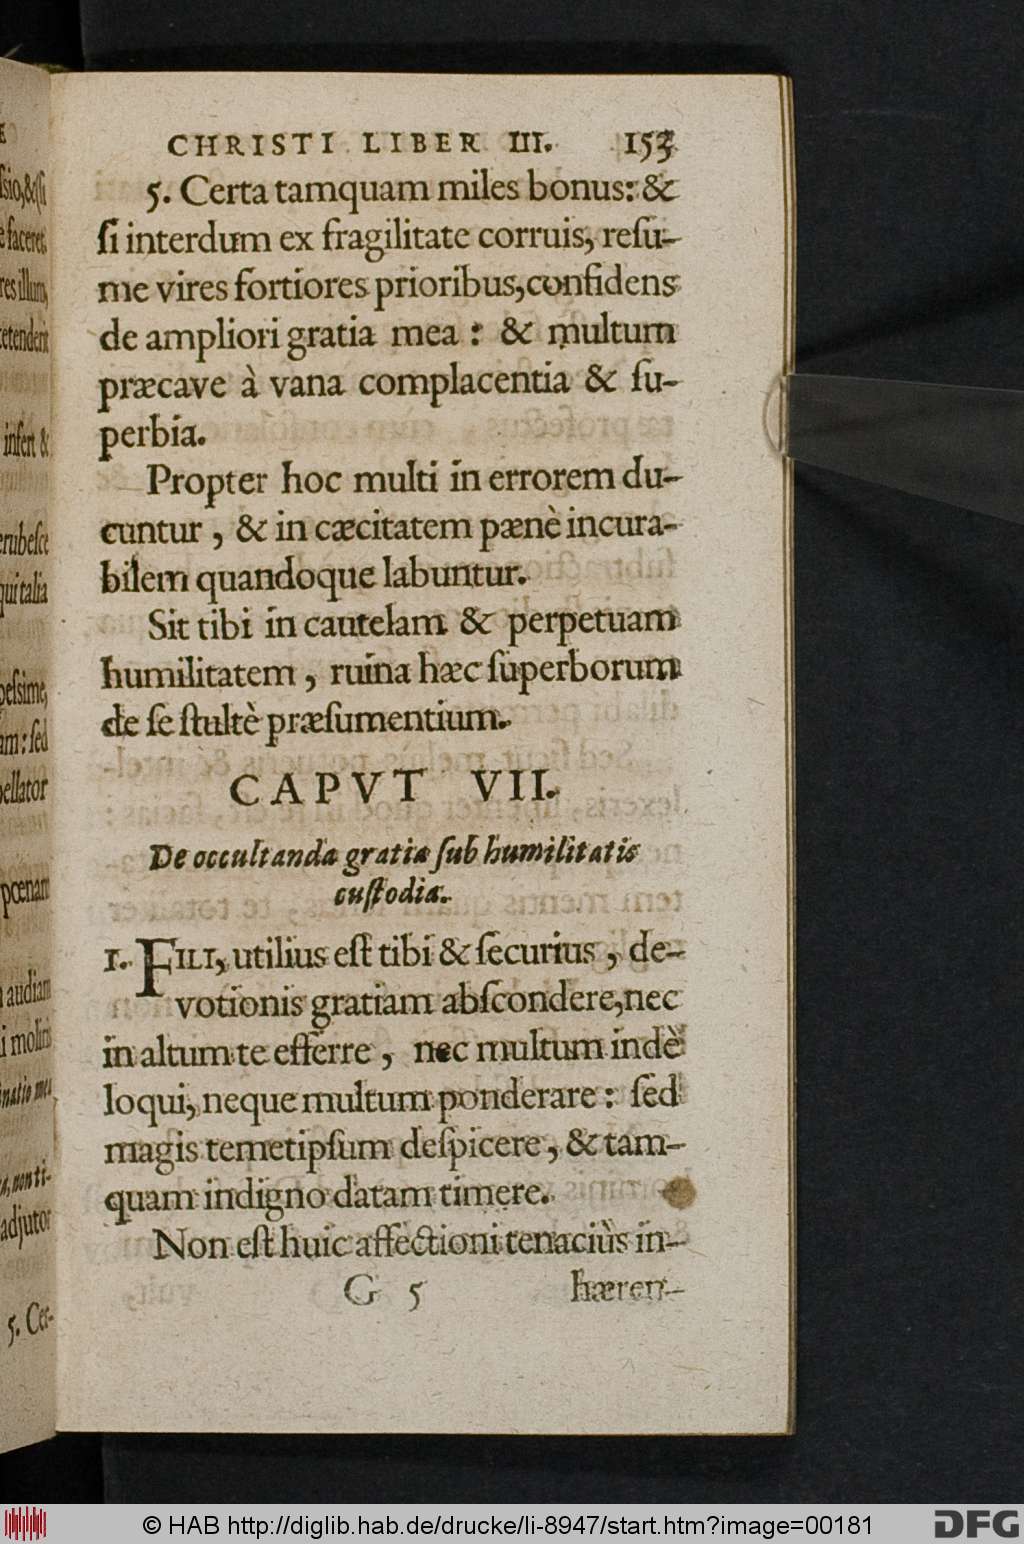 CHRISTI LIBER III. 153
5. Certa tamquam miles bonus: &
ſi interdum ex fragilitate corruis, reſu-
me vires fortiores prioribus, confidens
de ampliori gratia mea: & multum
præcave à vana complacentia & ſu-
perbia.
Propter hoc multi in errorem du-
cuntur, & in cæcitatem pænè incura-
bilem quandoque labuntur.
Sit tibi in cautelam & perpetuam
humilitatem, ruina hæc ſuperborum
de ſe ſtultè præſumentium.
CAPVT VII.
De occultanda gratia ſub humilitatis
cuſtodia.
1. FILI, utilius eſt tibi & ſecurius, de-
votionis gratiam abſcondere, nec
in altum te efferre, nec multum indè
loqui, neque multum ponderare: ſed
magis temetipſum deſpicere, & tam-
quam indigno datam timere.
Non eſt huic affectioni tenaciùs in-
G 5 hæren-
faceret,
res illum,
inſert &
erubeſce
qui talia
am: ſed
pœnam
audiam
adjutor
5. Cer-
© HAB http://diglib.hab.de/drucke/li-8947/start.htm?image=00181
DFG